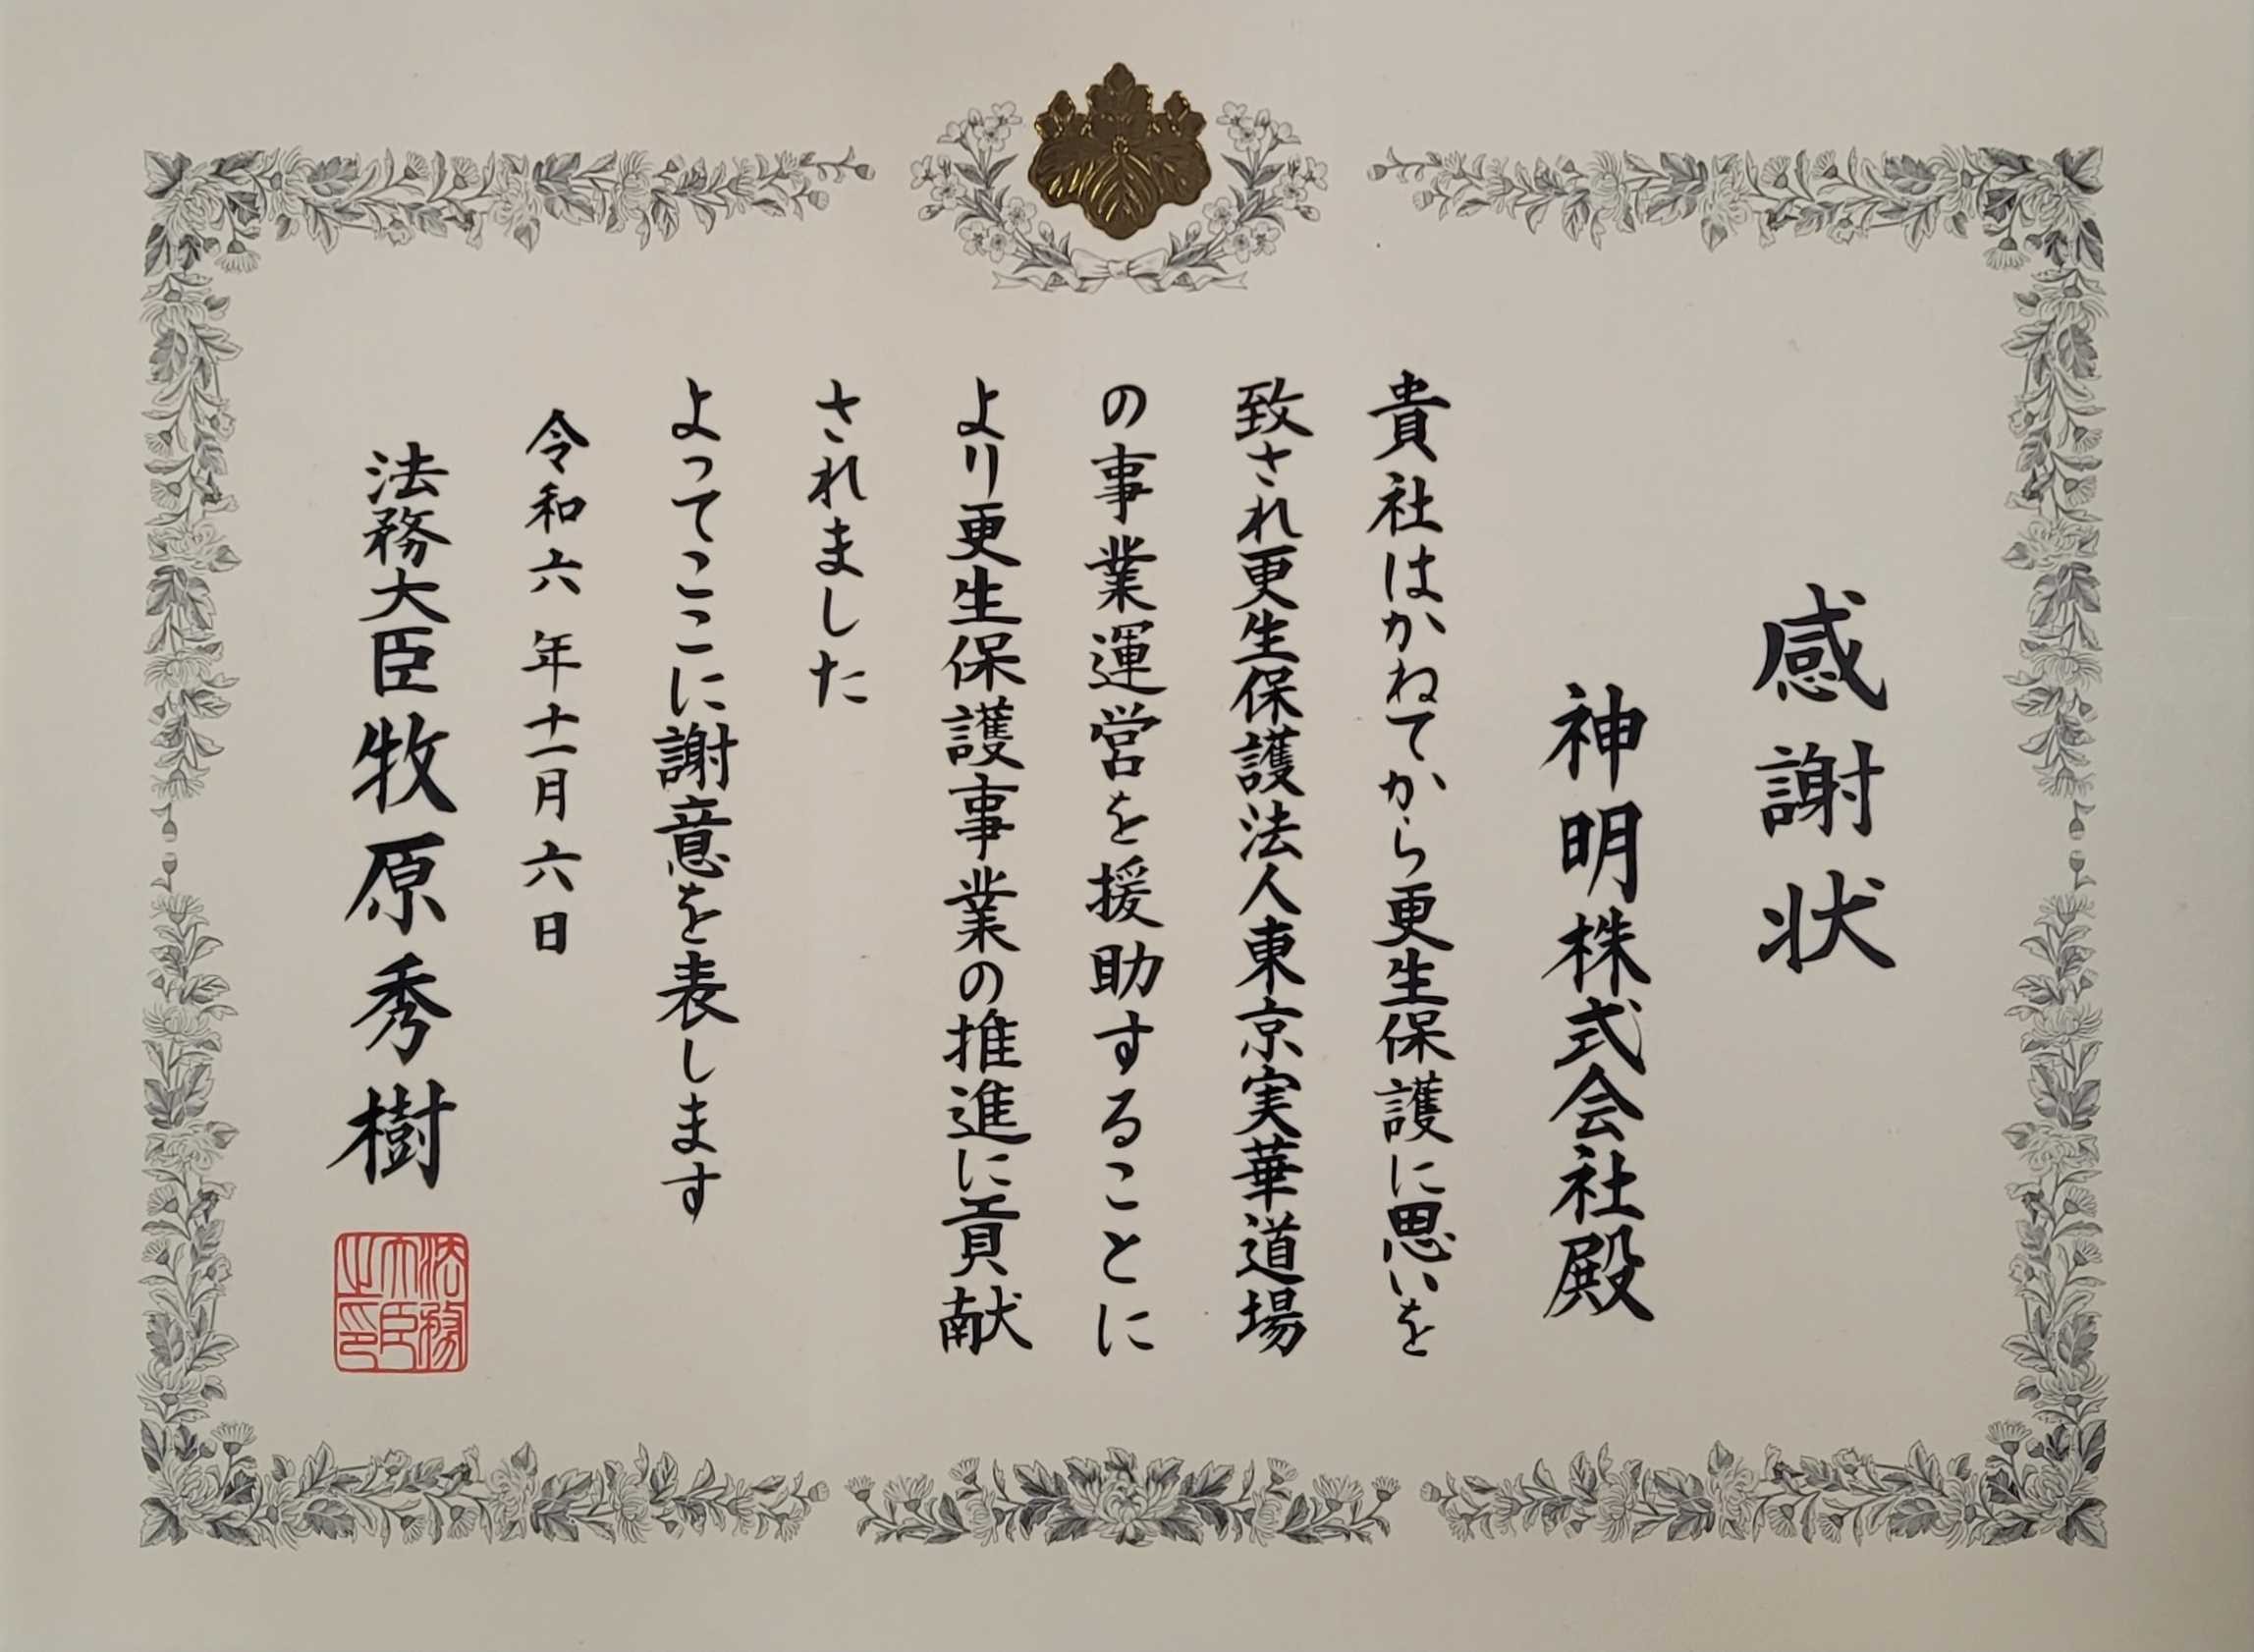 感謝状
神明株式会社殿
貴社はかねてから更生保護に思いを
致され更生保護法人東京実華道場
の事業運営を援助することに
より更生保護事業の推進に貢献
されました
よってここに謝意を表します
令和六年十一月六日
法務大臣牧原秀樹
法務
大臣
之印